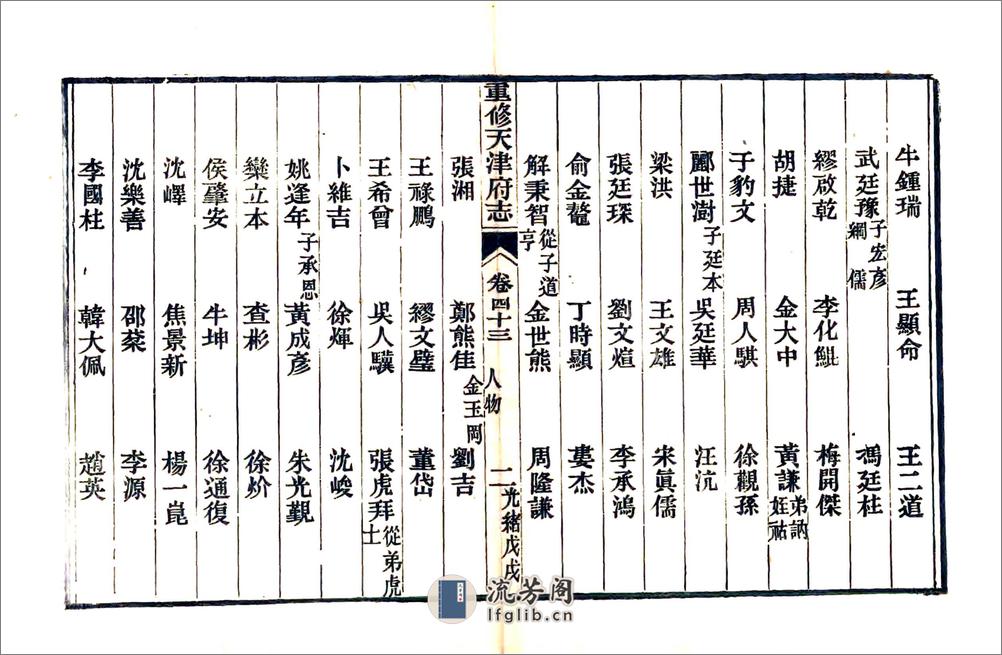 牛鍾瑞 王顯命 王二道
武廷豫 子宏彥 綱 儒 馮廷柱
繆啟乾 李化鯤 梅開傑
胡捷 金大中 黃謙 弟訥 姪祐
于豹文 周人騏 徐觀孫
酈世澍 子廷本 吳廷華 汪沆
梁洪 王文雄 宋眞儒
張廷琛 劉文煊 李承鴻
俞金鼇 丁時顯 婁杰
解秉智 從子道亨 金世熊 周隆謙
重修天津府志 卷四十三 人物 二 光緒戊戌
張湘 鄭熊佳 金玉岡 劉吉
王祿鵬 繆文璧 董岱
王希曾 吳人驥 張虎拜 從弟虎士
卜維吉 徐煇 沈峻
姚逢年 子承恩 黃成彥 朱光覲
欒立本 查彬 徐炘
侯肇安 牛坤 徐通復
沈嶧 焦景新 楊一崑
沈樂善 邵棻 李源
李國柱 韓大佩 趙英
流芳阁
lfglib.cn